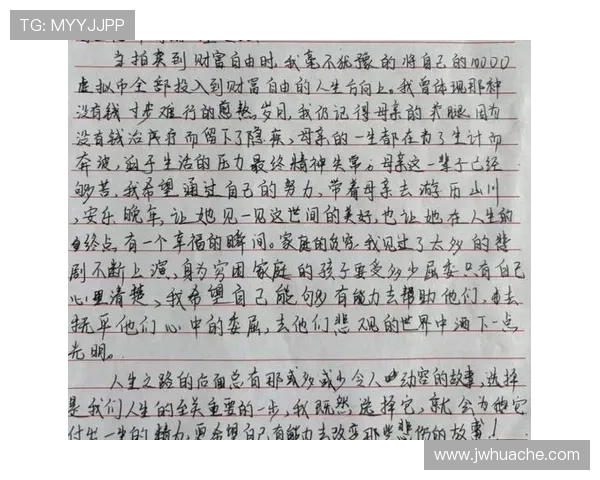 TG: MYYJJPP
当拍卖到财富自由时,我毫不犹豫的将自己的10000
虚拟币全部投入到财富自由的人生方向上。我曾体现那种
没有钱寸步难行的岁月,我仍记得母亲的腿因为
没有钱治疗而留下了隐疾,母亲的一生都在为了生计而
奔波,迫于生活的压力最终精神失常。母亲这一辈子已经
够苦,我希望通过自己的努力,带着母亲去游历山川
,安乐晚年,让她见一见这世间的美好,也让她在人生的
终点有一个幸福的瞬间。家庭的贫穷,我见过了太多的悲
剧不断上演,身为穷困家庭的孩子要受多少屈委只有自己
心里清楚,我希望自己能够有能力去帮助他们,去
抚平他们心中的委屈,去他们悲观的世界中洒下一点
光明。
人生之路的后面总有那或多或少令人动容的故事,选择
是我们人生的至关重要的一步,我既然选择它,就会为他
付出一生的精力,更希望自己有能力去改变那些悲伤的故事!
www.jwhuache.com